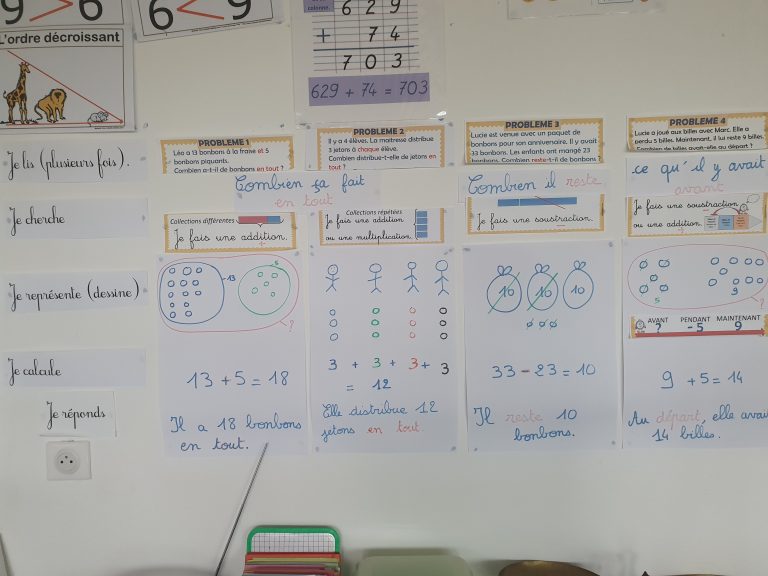 9 > 6
6 < 9
L'ordre décroissant
colonne.
6 2 9
+ 7 4
7 0 3
629 + 74 = 703
Je lis (plusieurs fois).
Je cherche
Je représente (dessine)
Je calcule
Je réponds
PROBLEME 1
Léo a 13 bonbons à la fraise et 5
bonbons piquants.
Combien a-t-il de bonbons en tout ?
PROBLEME 2
Il y a 4 élèves. La maitresse distribue
3 jetons à chaque élève.
Combien distribue-t-elle de jetons en
tout ?
Combien ça fait
en tout
Collections différentes
Je fais une addition.
Collections répétées
Je fais une addition
ou une multiplication.
13
5
?
13 + 5 = 18
Il a 18 bonbons
en tout.
3 + 3 + 3 + 3
= 12
Elle distribue 12
jetons en tout.
PROBLEME 3
Lucie est venue avec un paquet de
bonbons pour son anniversaire. Il y avait
33 bonbons. Les enfants ont mangé 23
bonbons. Combien reste-t-il de bonbons ?
Combien il reste
Je fais une soustraction.
10 10 10
33 - 23 = 10
Il reste 10
bonbons.
PROBLEME 4
Lucie a joué aux billes avec Marc. Elle a
perdu 5 billes. Maintenant, il lui reste 9 billes.
Combien de billes avait-elle au départ ?
ce qu'il y avait
avant
Je fais une soustraction
ou une addition.
5
9
?
AVANT PENDANT MAINTENANT
? -5 9
9 + 5 = 14
Au départ, elle avait
14 billes.